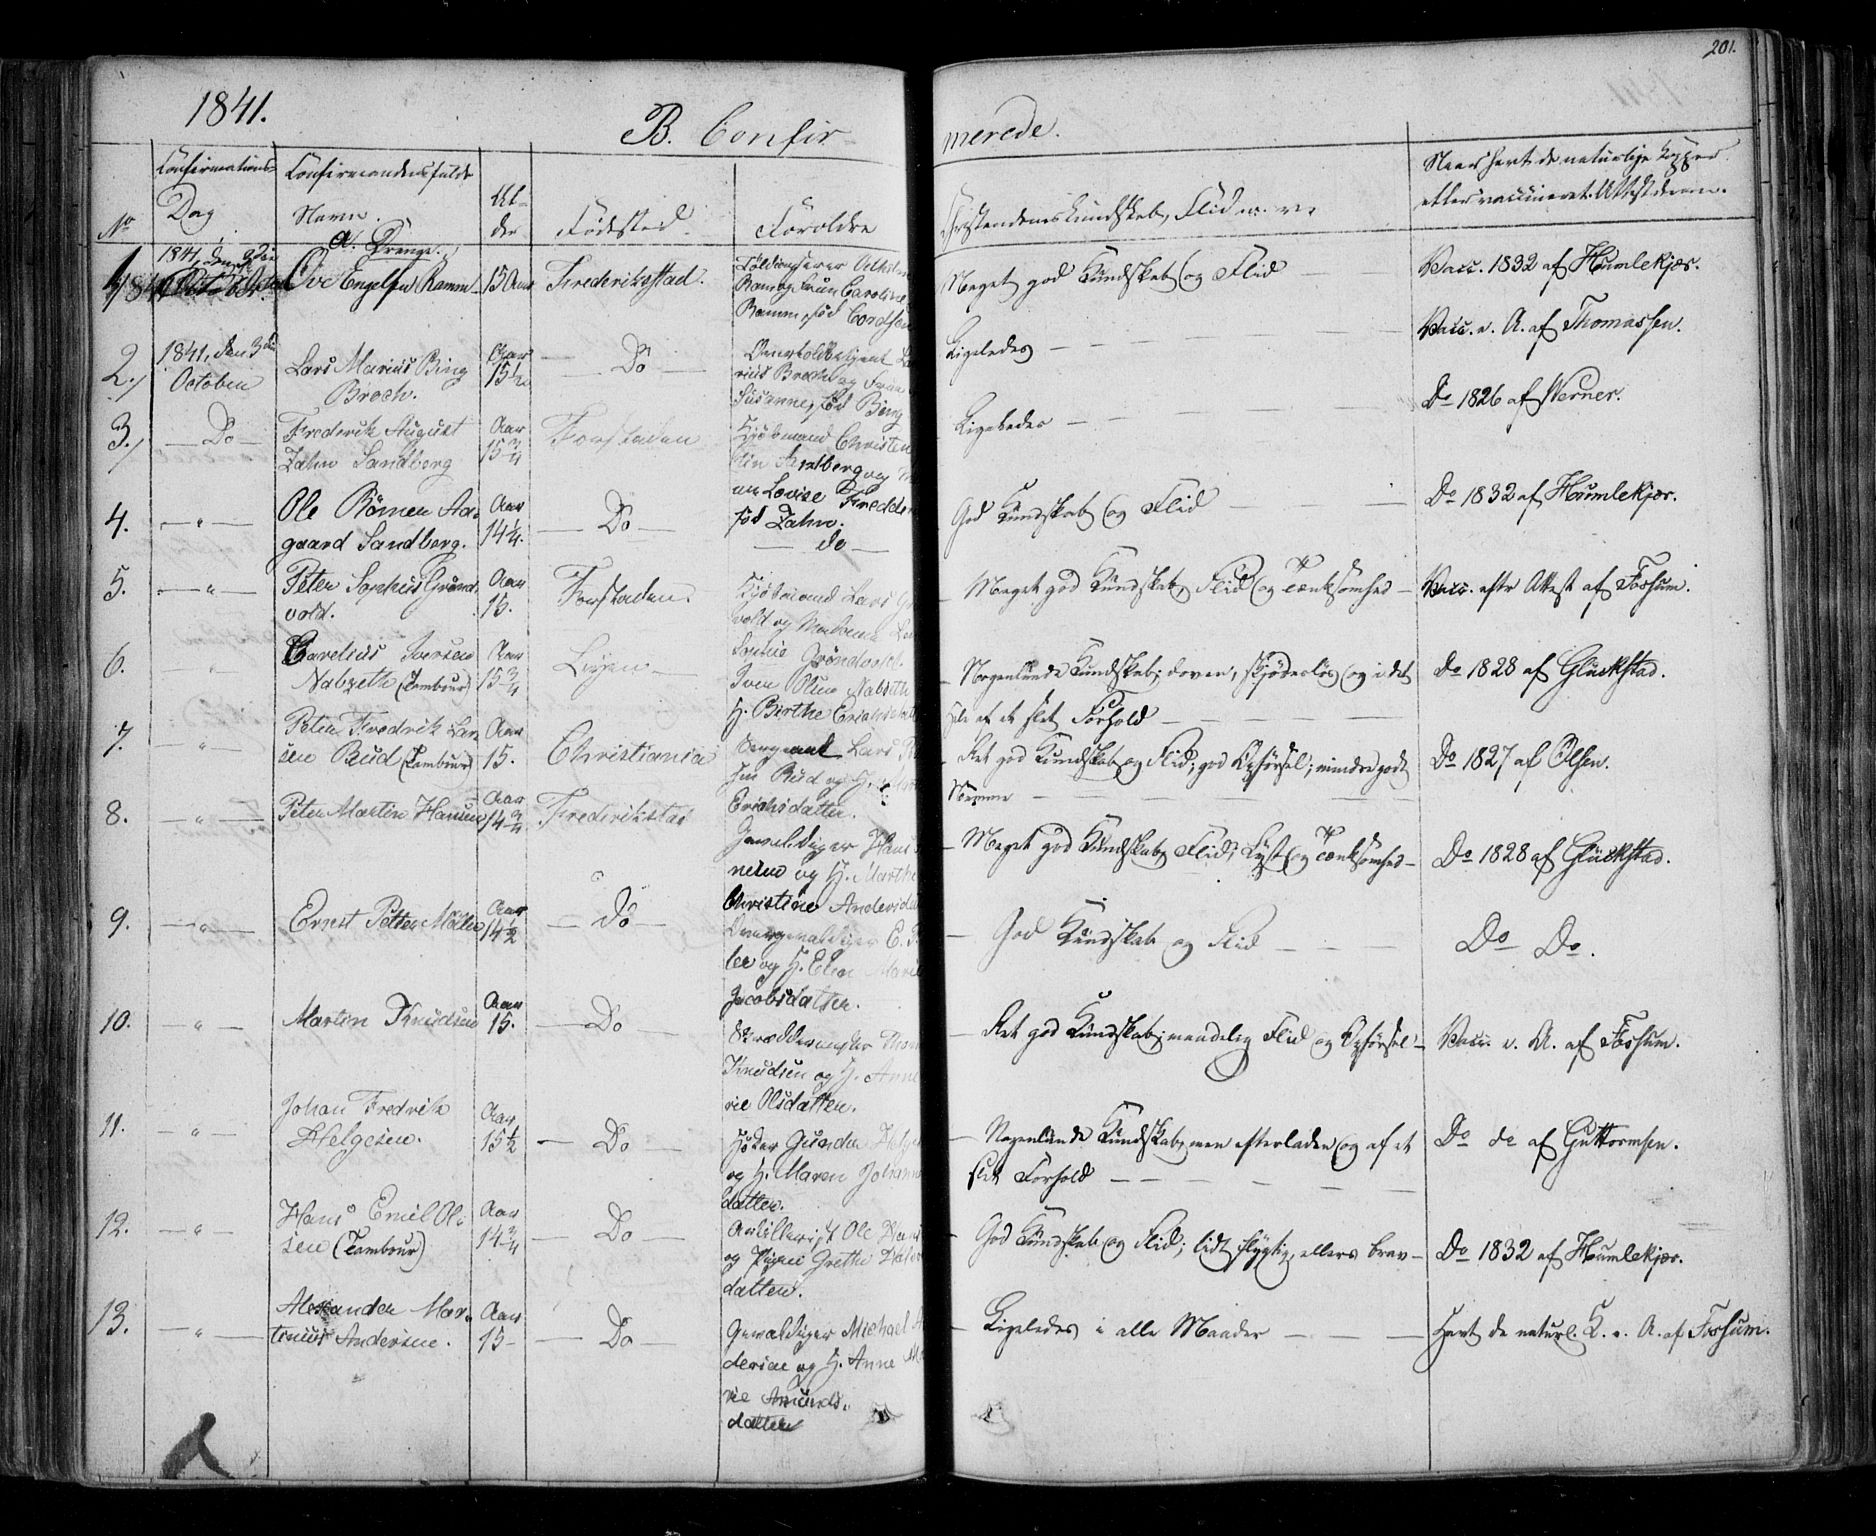 201.
1841.
B. Confir-
merede.
No
Confirmations-
Dag
Confirmandens fulde
Navn.
a. Drenge.
Al-
der
Födested.
Foröldre
Christendoms Kundskab, Flid
Naar havt de naturlige Kopper
eller vaccineret. Attest derom.
1. 1841, den 3die Oct. Ove Engelsen Ramm 15 Aar Frederiksstad.
Ramm og Frue Caroline
Ramm, föd Cordsen
Meget god Kundskab og Flid
Vacc. 1832 af Humlekjær.
2. 1841, den 3die October Lars Marius Bing Broch. Aar 15 1/2 Do
rius Broch og Frue
Susanne, föd Bing
Ligeledes
Vacc. e. A. af Thomassen.
3. Do Frederik August Zahn Sandberg Aar 15 3/4 Forstaden
Kjöbmand Christen
Sandberg og
ne Lovise Fredde
föd Zahn.
Ligeledes
Do 1826 af Werner.
4. " Ole Römer Aa-
gaard Sandberg. Aar 14 1/4. Do
do
God Kundskab og Flid
Do 1832 af Humlekjær.
5. " Peter Sophus Grönd-
vold. Aar 15. Forstaden.
Kjöbmand Lars
vold og Madame
Sophie Gröndvold.
Meget god Kundskab, Flid og Tænksomhed
Vacc. efter Attest af Fossum.
6. " Carelius Iversen
Nabseth (Tambour) Aar 15 3/4
Iver Olsen Nabseth
H. Birthe Erichsdatter
Nogenlunde Kundskab; doven, skjödeslös og i det
Hele af et slet Forhold
Do 1828 af Glückstad.
7. " Peter Fredrik Lar-
sen Rud (Tambour) Aar 15. Christiania
Sergeant Lars
Rud og H.
Erichsdatter.
Ret god Kundskab og Flid; god Opförsel; mindre godt
Nemme
Do 1827 af Olsen.
8. " Peter Martin Hansen Aar 14 3/4 Frederikstad
Gevaldiger Hans
og H. Marthe
Christine Andersdatter
Meget god Kundskab, Flid, Lyst og Tænksomhed
Do 1828 af Glückstad.
9. " Ernst Petter Möller Aar 14 1/2 Do
ler og H. Elen Marie
Jacobsdatter.
God Kundskab og Flid
Do Do.
10. " Morten Knudsen Aar 15. Do
Skræddermester
Knudsen og H. Anne
rie Olsdatter.
Ret god Kundskab; maadelig Flid og Opförsel
Vacc. e. A. af Fossum.
11. " Johan Fredrik
Helgesen. Aar 15 1/2 Do
Gunder Helge
og H. Maren Johanne
datter.
Nogenlunde Kundskab, men efterladen og af et
slet Forhold
Do do af Guttormsen.
12. " Hans Emil Ol-
sen (Tambour) Aar 14 3/4 Do
Artillerist Ole Hans
og Pigen Grethe
datter.
God Kundskab og Flid; lidt flygtig, ellers brav
Do 1832 af Humlekjær.
13. " Alexander Mar-
tinius Andersen. Aar 15 Do
Gevaldiger Michael An
dersen og H. Anne Ma
rie Amunds-
datter
Ligeledes i alle Maader
Havt de naturl. K. e. A. af Fossum.